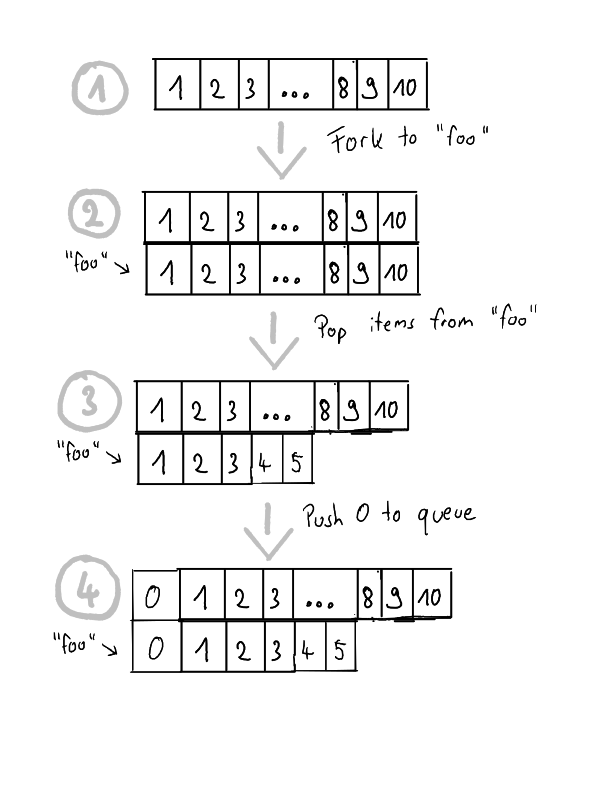 1 1 2 3 ... 8 9 10
Fork to "foo"
2 1 2 3 ... 8 9 10
"foo" 1 2 3 ... 8 9 10
Pop items from "foo"
3 1 2 3 ... 8 9 10
"foo" 1 2 3 4 5
Push 0 to queue
4 0 1 2 3 ... 8 9 10
"foo" 0 1 2 3 4 5